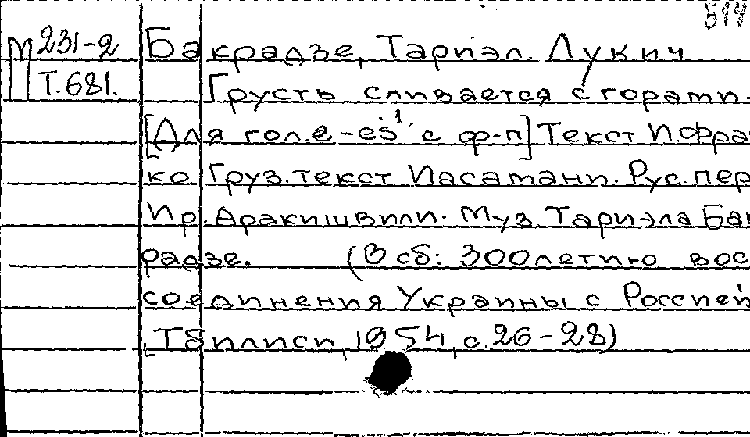 514
М 231-2 Бакрадзе, Тариэл. Лукич
Т.681. Грусть сливается с горами.
[Для гол. e-es¹ с ф-п] Текст И Фра
ко Груз. текст Иасатани. Рус. пер
Ир. Аракишвили. Муз. Тариэла Бак
радзе. (В сб: 300летию вос
соединения Украины с Россией
, Тбилиси, 1954, с. 26-28)